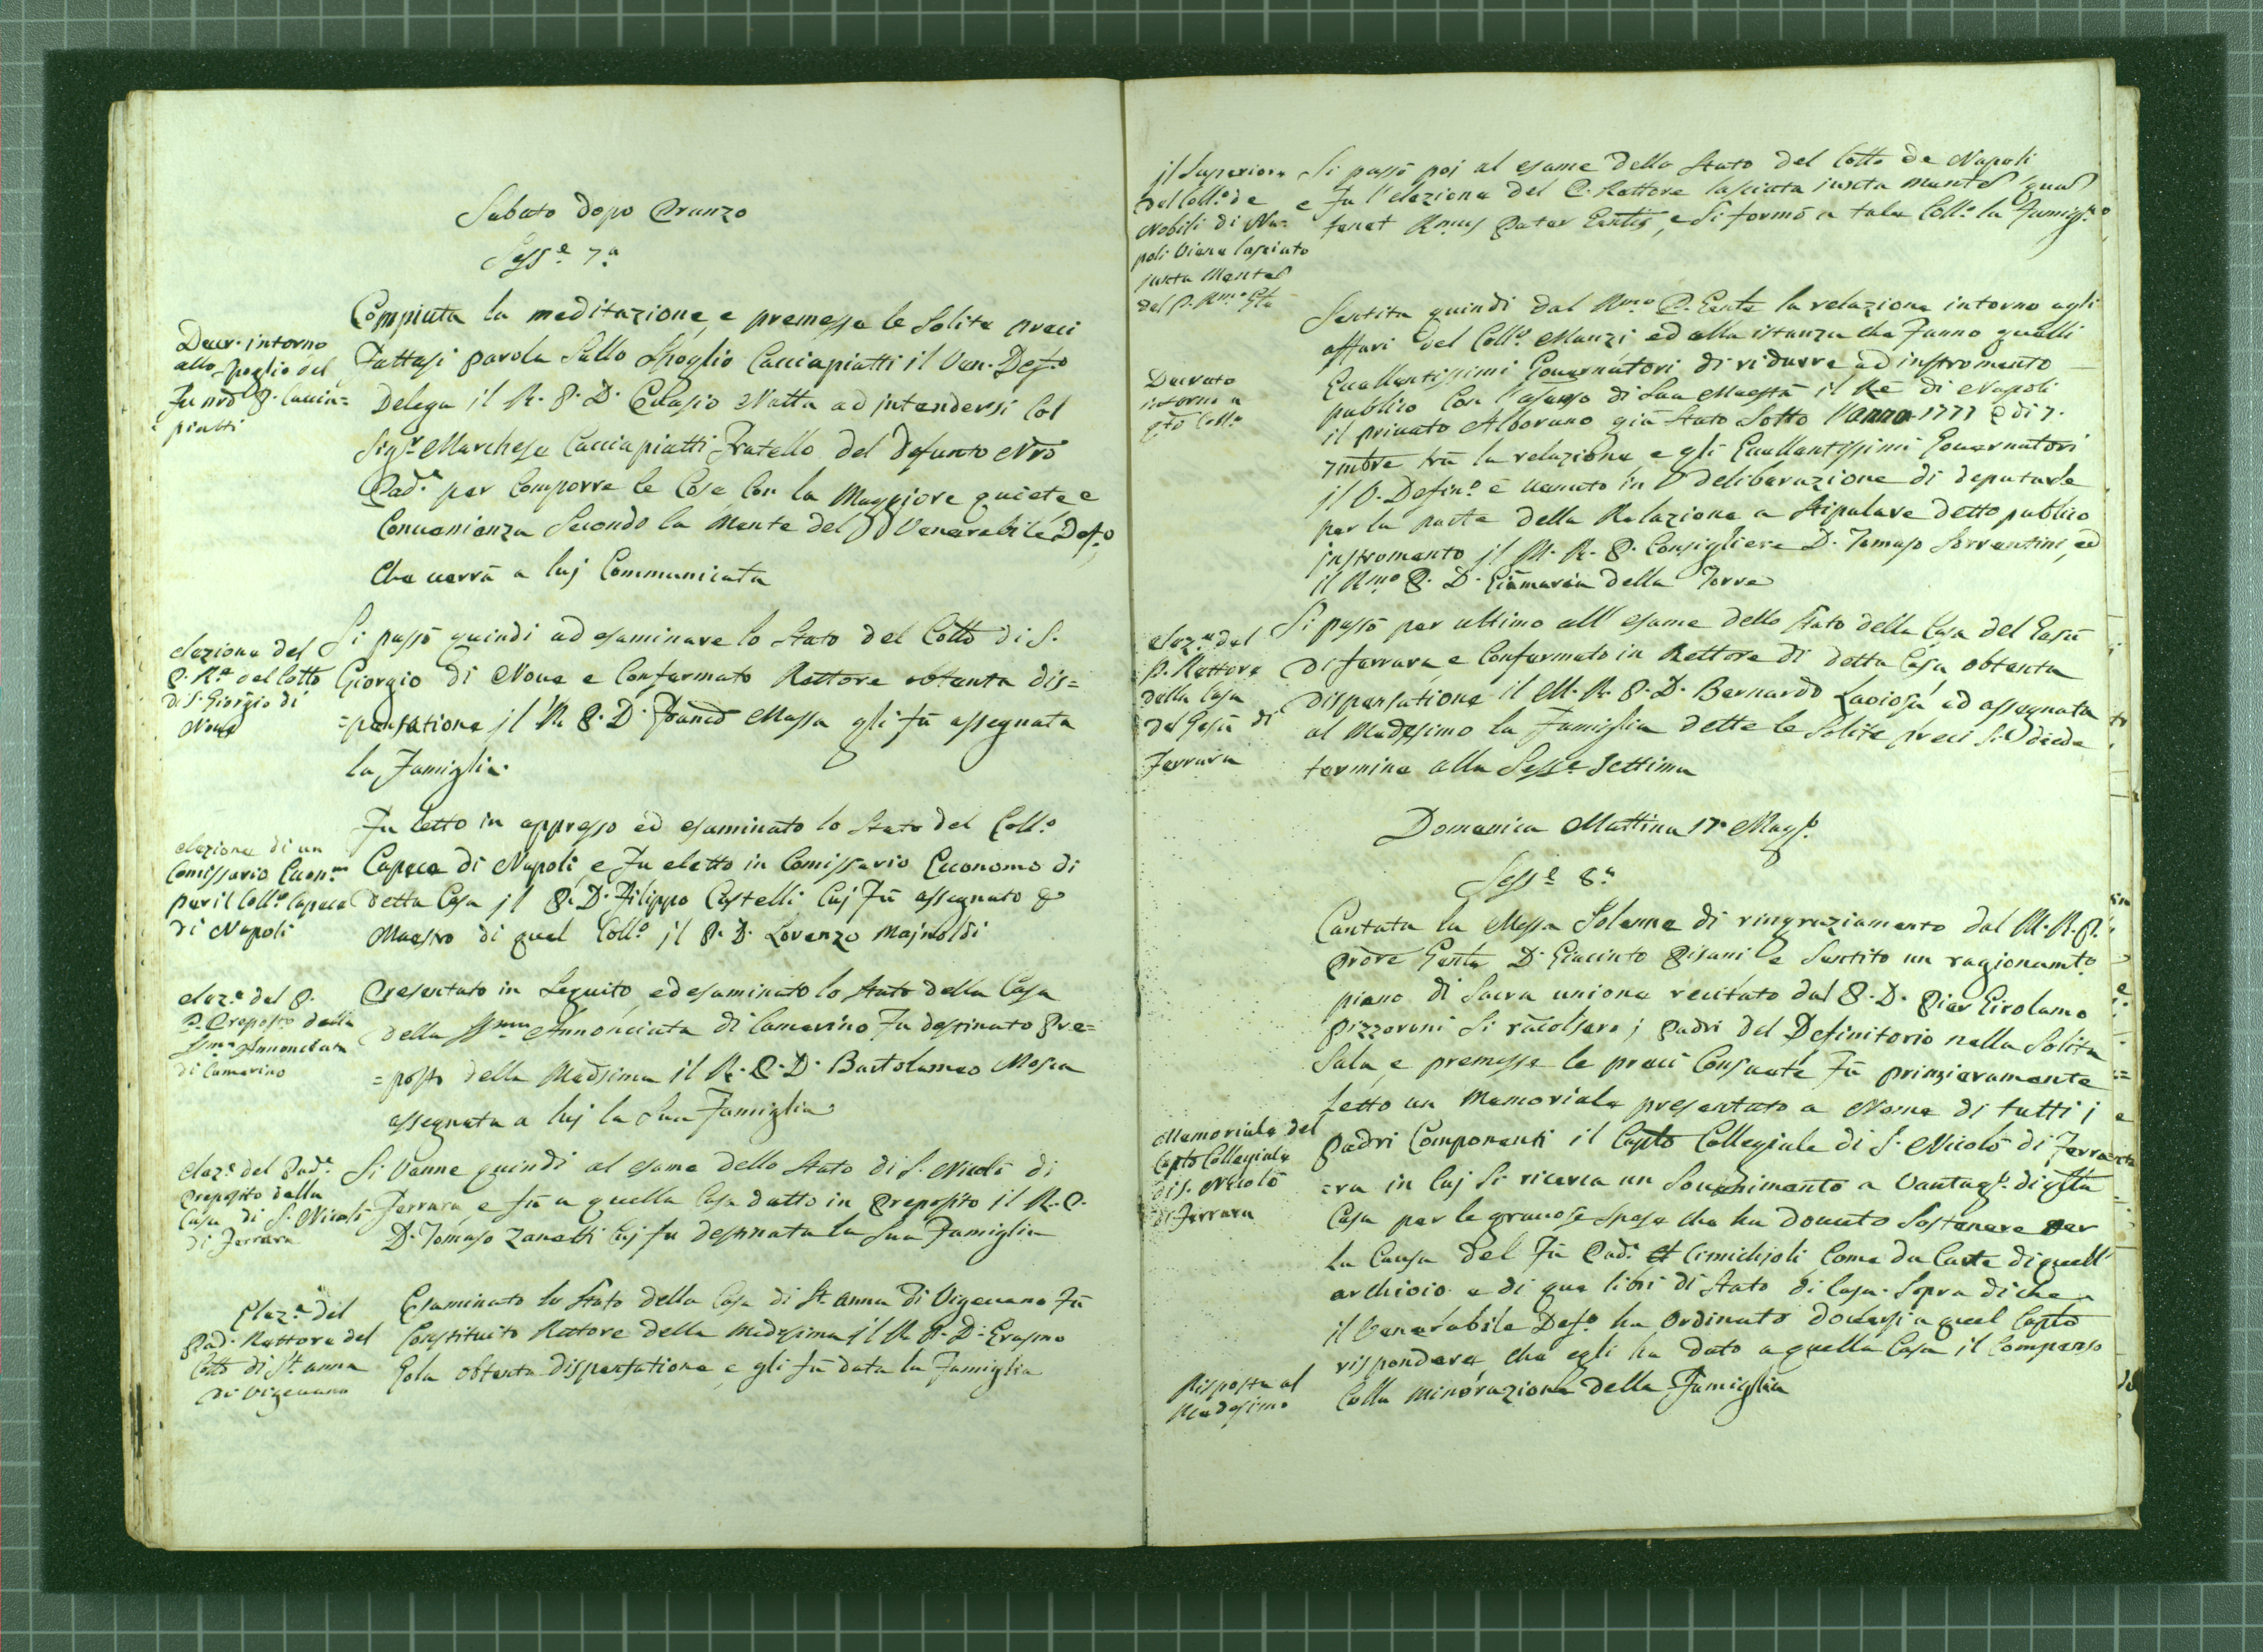 Sabato dopo Pranzo
Sess.e 7.a
Decr. intorno
allo spoglio del
Fu nro P. Caccia=
piatti
Compiuta la meditazione, e premesse le Solite preci
Fattasi parola Sullo Spoglio Cacciapiatti il Ven. Def.o
Delega il R. P. D. Natta ad intendersi Col
Sig.r Marchese Cacciapiatti Fratello del defunto Nro
Pad.e per Comporre le Cose Con la Maggiore quiete, e
Convenienza Secondo la Mente del Venerabile Def.o,
Che verrà a luj Communicata
elezione del
P. R.e del Collo
di S. Giorgio di
Nove
Si passò quindi ad esaminare lo Stato del Collo di S.
Giorgio di Nove e Confermato Rettore obtenta dis=
=pensatione jl R. P. D. Franco Massa gli fù assegnata
la Famiglia.
elezione di un
Comissario Econ.mo
per il Coll.o Capece
di Napoli
Fu letto in appresso ed esaminato lo Stato del Coll.o
Capece di Napoli, e Fu eletto in Comissario Economo di
detta Casa jl P. D. Filippo Castelli Cuj Fù assegnato p
Maestro di quel Coll.o jl P. D. Lorenzo Majnoldi
elez.e del P.
P. Preposto della
SSma Annonciata
di Camerino
Presentato in Seguito, ed esaminato lo Stato della Casa
della SSma Annonciata di Camerino Fu destinato Pre=
=posto della Medsima il R. P. D. Bartolameo Mosca
assegnata a luj la Sua Famiglia
elez.e del Pad.e
Preposito della
Casa di S. Nicolò
di Ferrara
Si Venne quindi al esame dello Stato di S. Nicolò di
Ferrara, e fù a quella Casa datto in Preposito il R. P.
D. Tomaso Zanetti Cuj fu destinata la Sua Famiglia
Elez.e del
Pad. Rettore del
Collo di St. Anna
di Vigevano
Esaminato lo Stato della Casa di St. Anna di Vigevano Fù
Constituito Rettore della medesima jl R. P. D. Erasmo
Gola obtenta dispensatione, e gli fù data la Famiglia
jl Superiore
del Coll.o de
Nobili di Na=
poli Viene lasciato
juxta Mentem
del P. Rmo Gle
Si passò poj al esame dello Stato del Collo de Napoli
e Fu l'elezione del P. Rettore lasciata juxta mentem quam
tenet Rmus Pater Gentis, e Si formò a tale Coll.o la Famig.a
Decreto
intorno a
qto Coll.o
Sentita quindi dal Rmo P. Gente la relazione intorno agli
affari del Coll.o Manzi ed alla istanza che Fanno quelli
Eccellentissimi Governatori di ridurre ad instromento
publico Con l'assenso di Sua Maestà il Re di Napoli
il privato Alborano già Stato Sotto l'anno 1777 e di 7.
7mbre trà la relazione, e gli Eccellentissimi Governatori
jl V. Defin.o è venuto in deliberazione di deputarle
per la parte della Relazione a Stipulare detto publico
jnstromento jl M. R. P. Consigliere D. Tomaso Sorrentini, ed
il Rmo P. D. Giāmaria della Torre
elez.e del
P. Rettore
della Casa
del Gesù di
Ferrara
Si passò per ultimo all'esame dello Stato della Casa del Gesù
di Ferrara, e Confermato in Rettore di detta Casa obtenta
dispensatione il M. R. P. D. Bernardo Laviosa' ed assegnata
al Medesimo la Famiglia dette le Solite preci Si diede
termine alla Sess.e Settima
Domenica Mattina 17 Magg.o
Sess.e 8.a
Cantata la Messa Solenne di ringraziamento dal M. R. P.
Prōre Gente D. Giacinto Pisani e Sentito un ragionamto
pieno di Sacra unione recitato dal P. D. Pier Girolamo
Pizzoroni Si racolsero j Padri del Definitorio nella Solita
Sala, e premesse le preci Consuete Fù primieramente
Letto un Memoriale presentato a Nome di tutti i
Memoriale del
Capto Collegiale
di S. Nicolò
di Ferrara
Padri Componenti il Capto Collegiale di S. Nicolò di Ferra=
=ra in Cuj Si ricerca un Souvenimento a Vantagg.o di qlla
Casa per le gravose Spese che ha douuto Sostenere per
la Causa del Fù Pad.e Cimichioli Come da Carte di quell'
archivio e di que libri di Stato di Casa. Sopra di che
il Venerabile Def.o ha Ordinato doversi a quel Capto
Risposta al
Medesimo
rispondere, che egli ha dato a quella Casa il Compenso
Colla minorazione della Famiglia